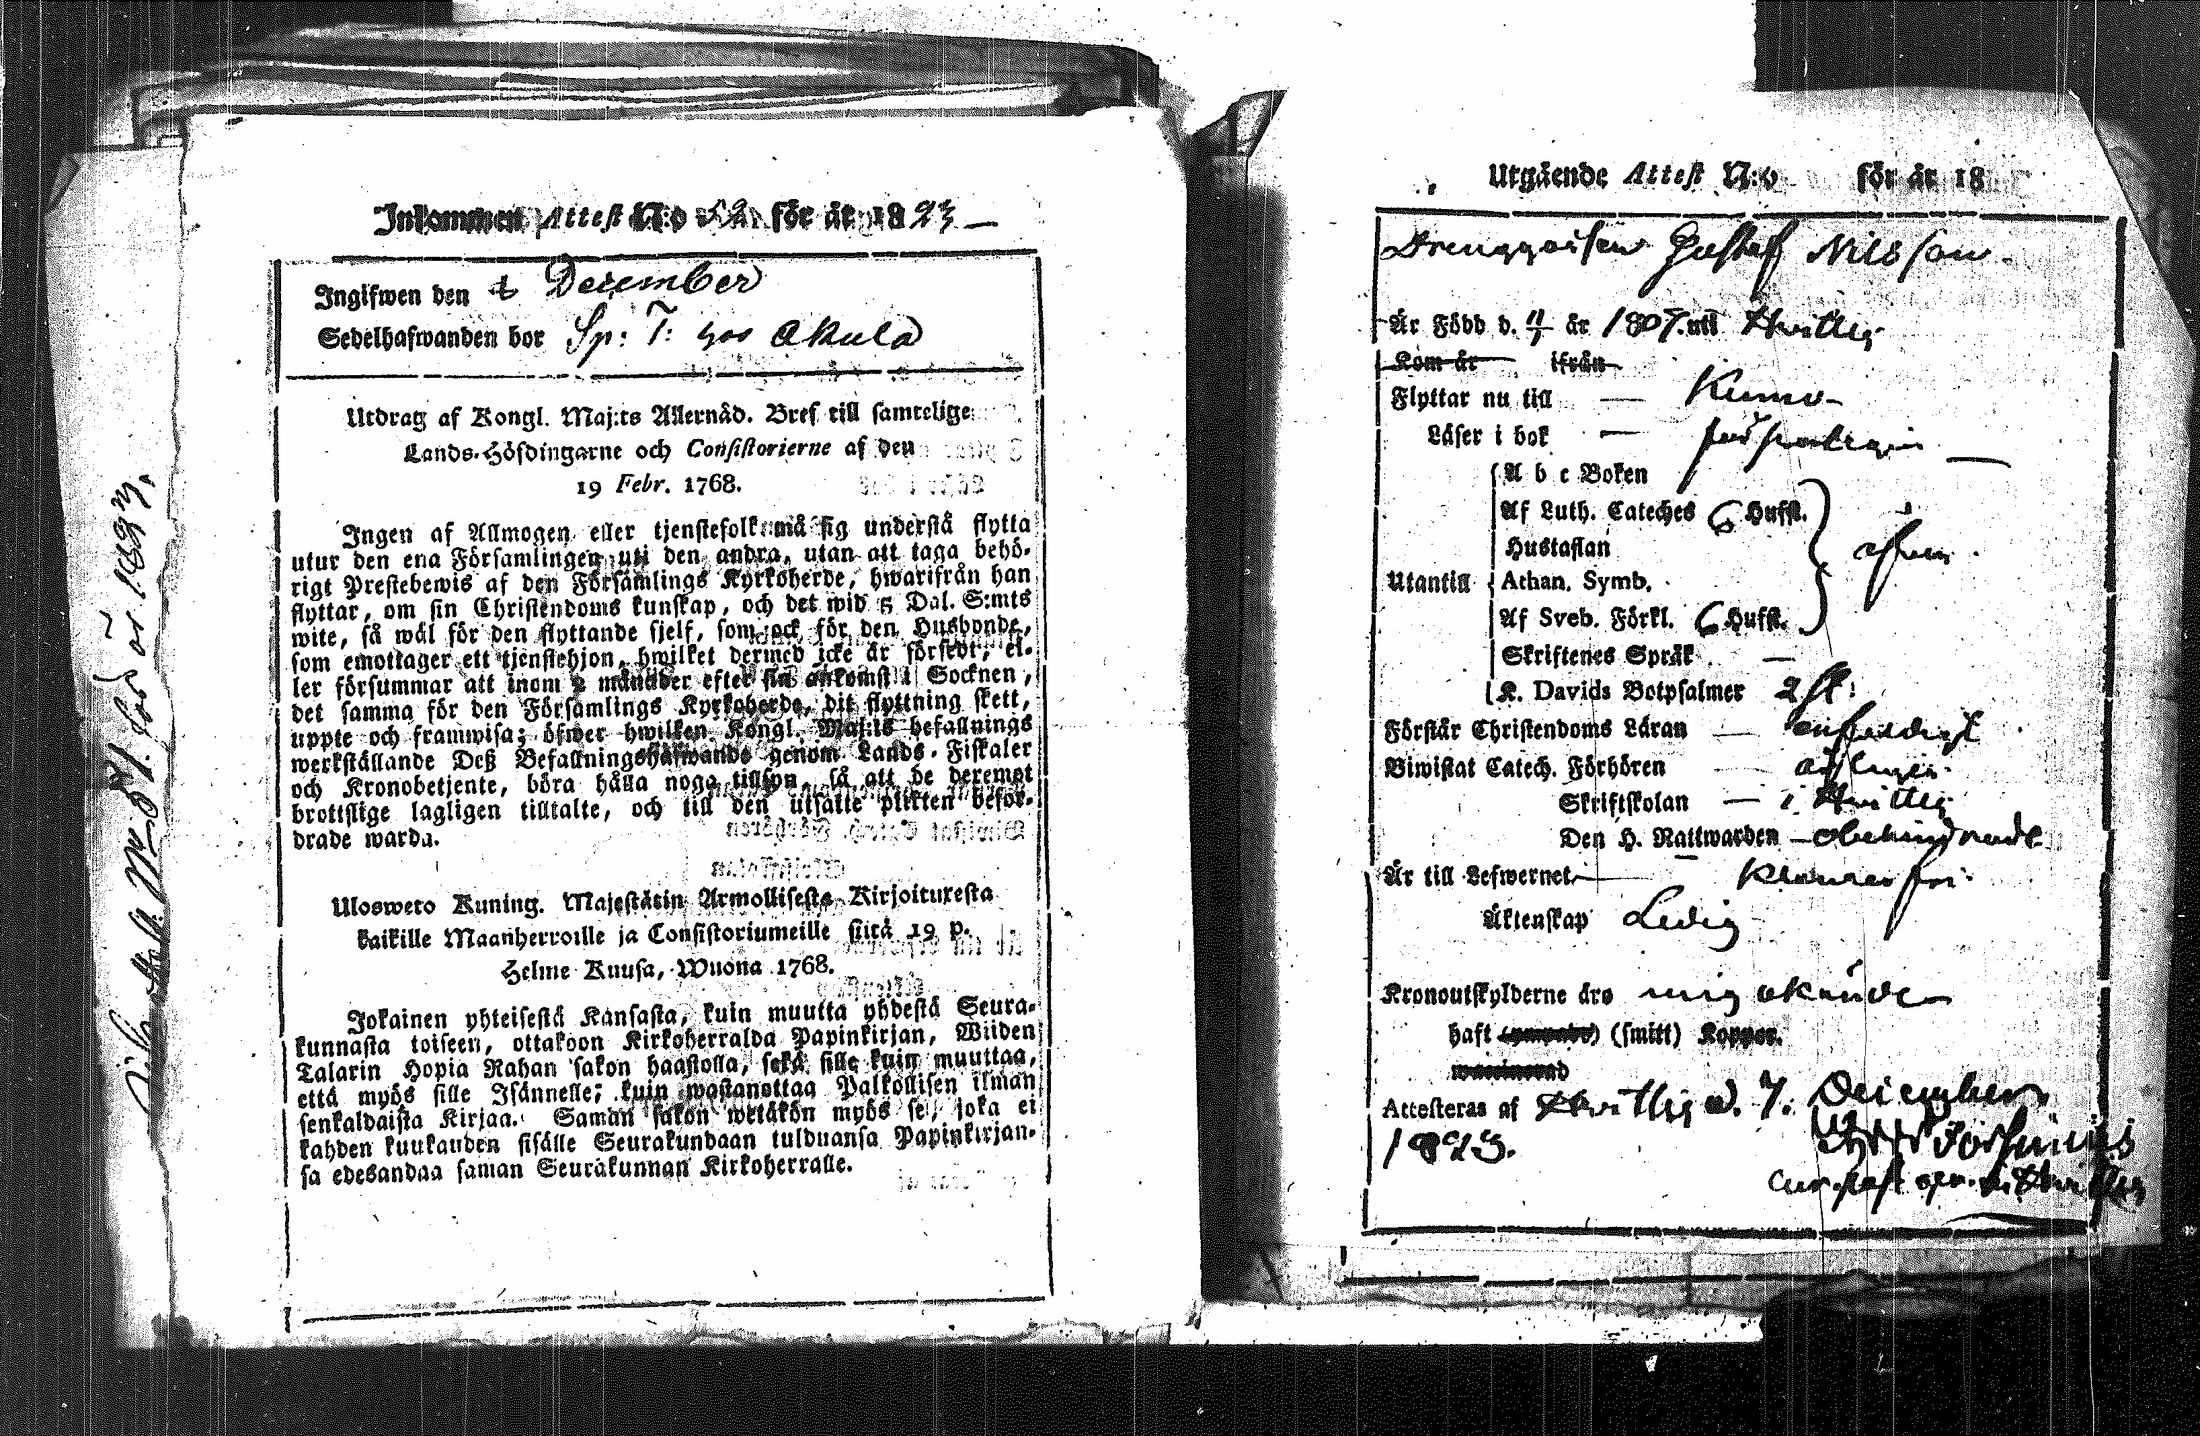 Inkommen Attest N:o 52 för år 1823
Ingifwen den December
Sedelhafwanden bor Sp: T: hos Akula
Utdrag af Kongl. Maj:ts Allernåd. Bref till samtelige
Lands-Höfdingarne och Consistorierne af den
19 Febr. 1768.
Ingen af Allmogen eller tjenstefolk må sig understå flytta
utur den ena Församlingen uti den andra, utan att taga behö-
rigt Prestebewis af den Församlings Kyrkoherde, hwarifrån han
flyttar, om sin Christendoms kunskap, och det wid 5 Dal. S:mts
wite, så wäl för den flyttande sjelf, som ock för den Husbonde,
som emottager ett tjenstehjon, hwilket dermed icke är försedt, el-
ler försummar att inom 2 månader efter sin ankomst i Socknen,
det samma för den Församlings Kyrkoherde, dit flyttning skett,
uppte och framwisa; öfwer hwilken Kongl. Maj:ts befallnings
werkställande Deß Befallningshafwande genom Lands-Fiskaler
och Kronobetjente, böra hålla noga tillsyn, så att de deremot
brottslige lagligen tilltalte, och till den utsatte plikten befor-
drade warda.
Ulosweto Kuning. Majestätin Armollisesta Kirjoituxesta
kaikille Maanherroille ja Consistoriumeille siitä 19 p.
Helme Kuusa, Wuona 1768.
Jokainen yhteisestä Kansasta, kuin muutta yhdestä Seura-
kunnasta toiseen, ottakoon Kirkoherralda Papinkirjan, Wiiden
Talarin Hopia Rahan sakon haastolla, sekä sille kuin muuttaa,
että myös sille Isännelle, kuin wastanottaa Palkollisen ilman
senkaldaista Kirjaa. Saman sakon wetäkön myös se, joka ei
kahden kuukauden sisälle Seurakundaan tulduansa Papinkirjan-
sa edesandaa saman Seurakunnan Kirkoherralle.
Utgående Attest N:o för år 18
Drenggossen Gustaf Nilsson
Är Född d. 11/1 år 1807. uti Hvittis
Kom år ifrån
Flyttar nu till Kumo
Läser i bok försvarligen
A b c Boken
Af Luth. Cateches 6 Hufst.
Hustaflan
Utantill Athan. Symb.
Af Sveb. Förkl. 6 Hufst.
Skriftenes Språk
K. Davids Botpsalmer 2 st:
Förstår Christendoms Läran enfaldigt
Biwistat Catech. Förhören årligen
Skriftskolan i Hvittis
Den H. Nattwarden obehindrad
Är till Lefwernet
Äktenskap Ledig
Kronoutskylderne äro mig okände
haft (smitt) Koppor.
Attesteras af Hvittis d. 7. December
1823.